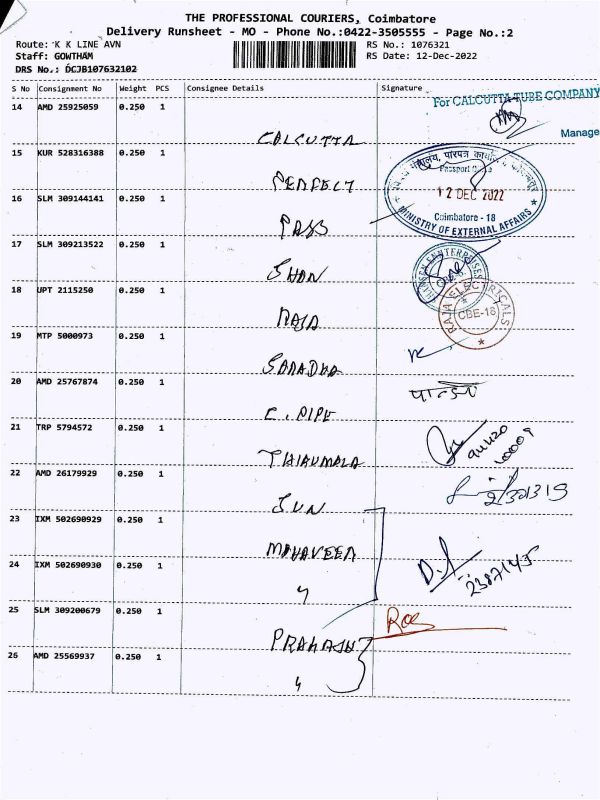 THE PROFESSIONAL COURIERS, Coimbatore
Delivery Runsheet - MO - Phone No.:0422-3505555 - Page No.:2
Route: K K LINE AVN
RS No.: 1076321
Staff: GOWTHAM
RS Date: 12-Dec-2022
DRS No.: DCJB107632102
S No Consignment No Weight PCS Consignee Details Signature
For CALCUTTA TUBE COMPANY
14 AMD 25925059 0.250 1 CALCUTTA
Manage
15 KUR 528316388 0.250 1 PERFECT
Passport
12 DEC 2022
Coimbatore - 18
MINISTRY OF EXTERNAL AFFAIRS
16 SLM 309144141 0.250 1 PASS
17 SLM 309213522 0.250 1 SHAN
ENTERPRISES
18 UPT 2115250 0.250 1 RAJA
RAJA ELECTRICALS
CBE-18
19 MTP 5000973 0.250 1 SARADHA
20 AMD 25767874 0.250 1 C. PIPE
21 TRP 5794572 0.250 1 THIRUMALA
22 AMD 26179929 0.250 1 SUN
23 IXM 502690929 0.250 1 MAHAVEER
24 IXM 502690930 0.250 1 4
2387145
25 SLM 309200679 0.250 1 PRAKASH
26 AMD 25569937 0.250 1 4